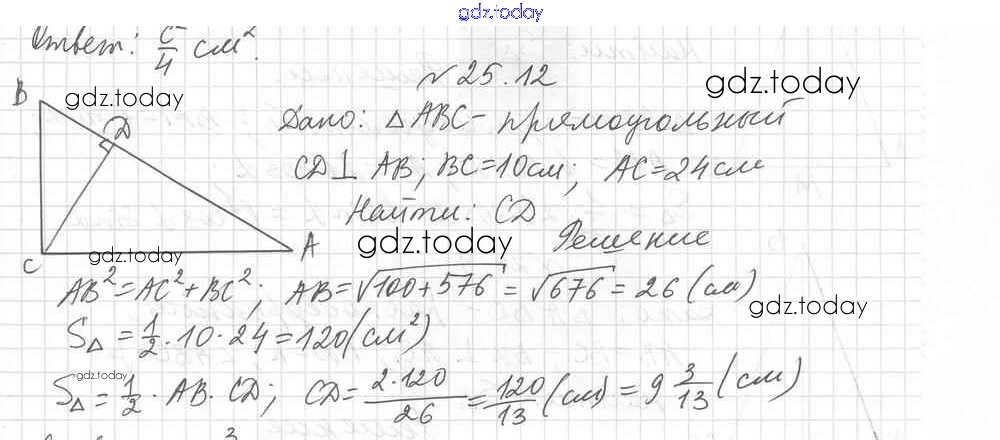 gdz.today
Ответ: c/4 см².
№ 25.12
gdz.today
gdz.today
B
D
Дано: △ ABC - прямоугольный
CD ⊥ AB; BC = 10 см; AC = 24 см
Найти: CD
gdz.today
gdz.today
Решение
C
A
AB² = AC² + BC²; AB = √100 + 576 = √676 = 26 (см)
gdz.today
S△ = 1/2 · 10 · 24 = 120 (см²)
gdz.today
S△ = 1/2 · AB · CD; CD = 2 · 120/26 = 120/13 (см) = 9 3/13 (см)